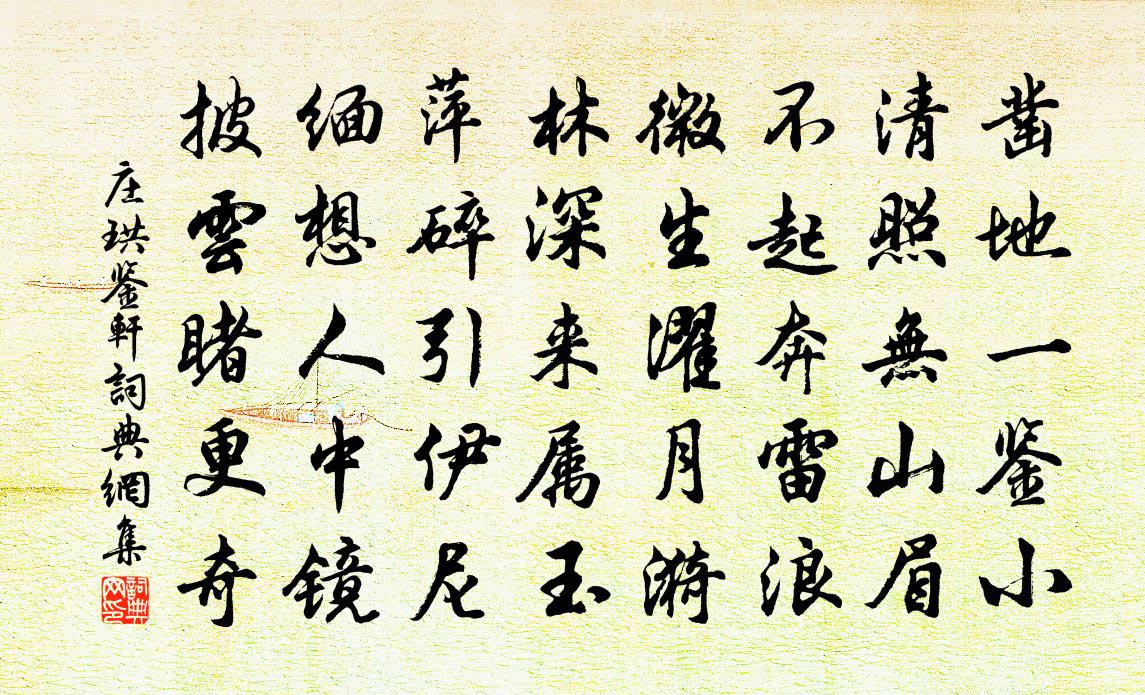 凿地一鉴小
清照無山眉
不起奔雷浪
微生濯月漪
林深来属玉
萍碎引伊尼
缅想人中镜
披雲睹更奇
庄珙鉴軒 詞典網集
詞典网印